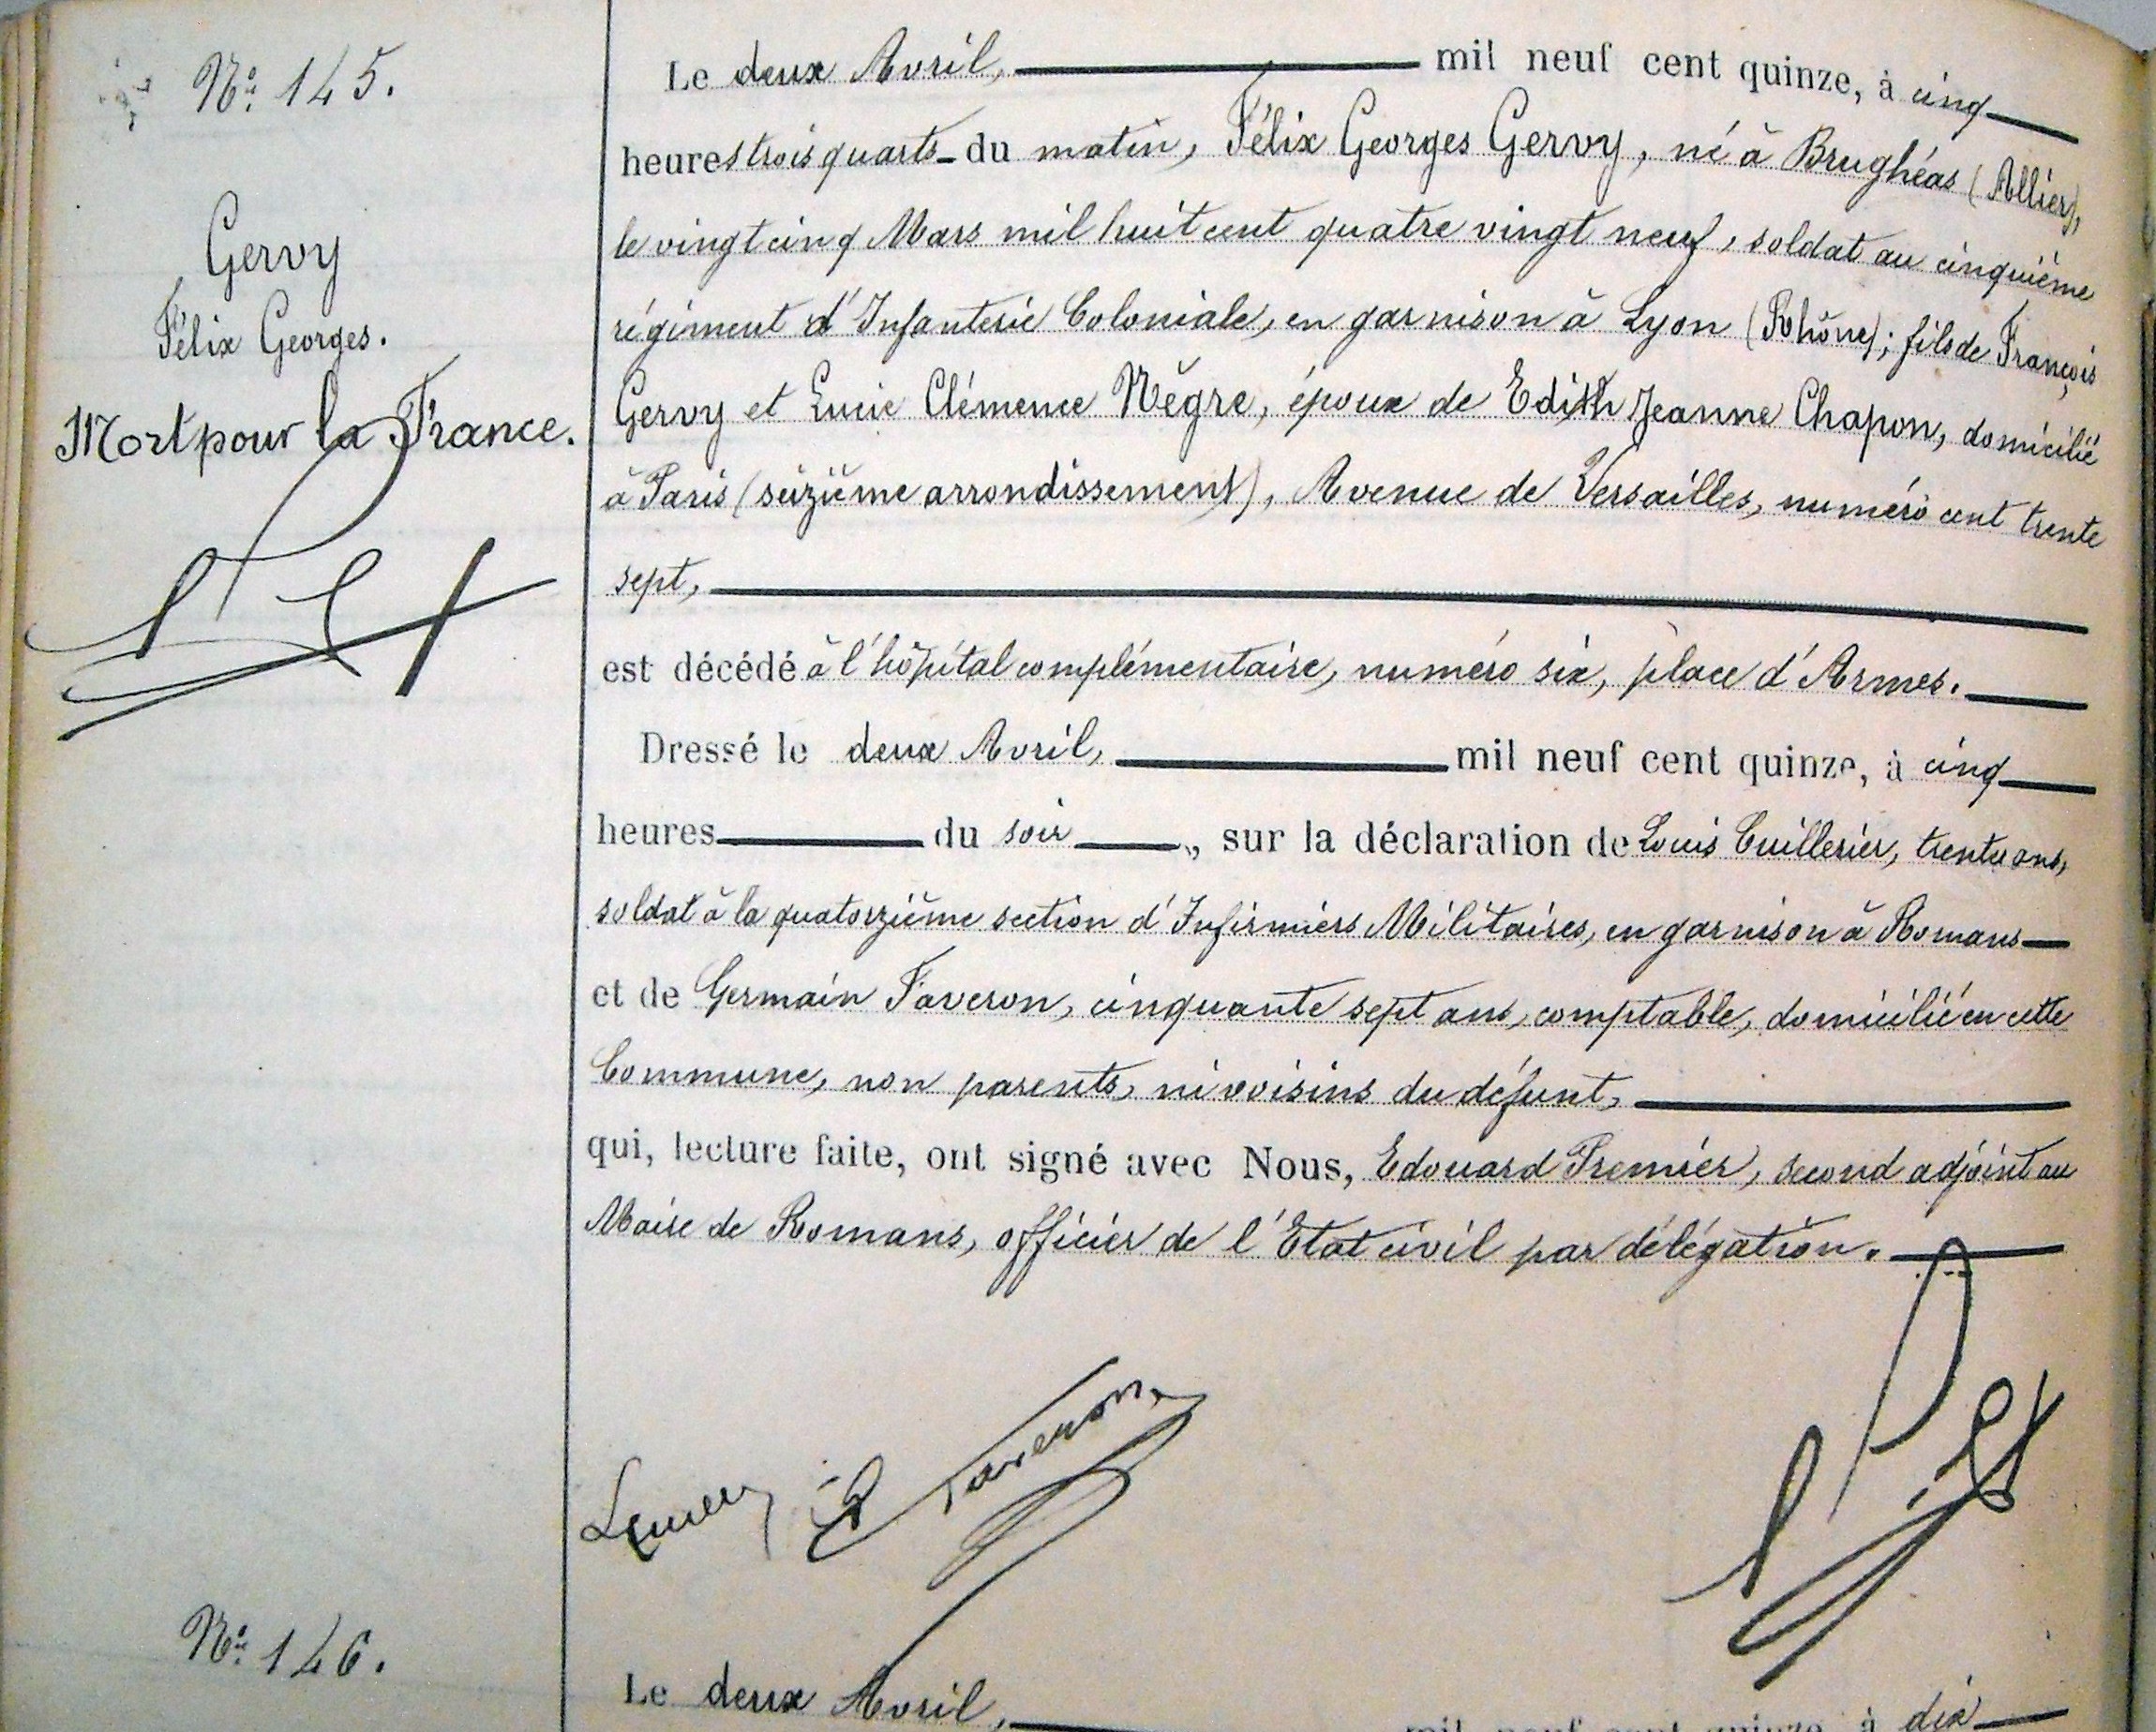 N° 145.
Gervy
Félix Georges.
Mort pour la France.
Le deux Avril, mil neuf cent quinze, à cinq
heures trois quarts du matin, Félix Georges Gervy, né à Brughéas (Allier),
le vingt cinq Mars mil huit cent quatre vingt neuf, soldat au cinquième
régiment d'Infanterie Coloniale, en garnison à Lyon (Rhône); fils de François
Gervy et Lucie Clémence Nègre, époux de Edith Jeanne Chapon, domicilié
à Paris (seizième arrondissement), Avenue de Versailles, numéro cent trente
sept,
est décédé à l'hôpital complémentaire, numéro six, place d'Armes.
Dressé le deux Avril, mil neuf cent quinze, à cinq
heures du soir, sur la déclaration de Louis Cuillerier, ans,
soldat à la quatorzième section d'Infirmiers Militaires, en garnison à Romans
et de Germain Faveron, cinquante sept ans, comptable, domicilié en cette
Commune, non parents, ni voisins du défunt,
qui, lecture faite, ont signé avec Nous, Edouard Premier, second adjoint au
Maire de Romans, officier de l'Etat civil par délégation.
Faveron
N° 146.
Le deux Avril, mil neuf cent quinze, à dix